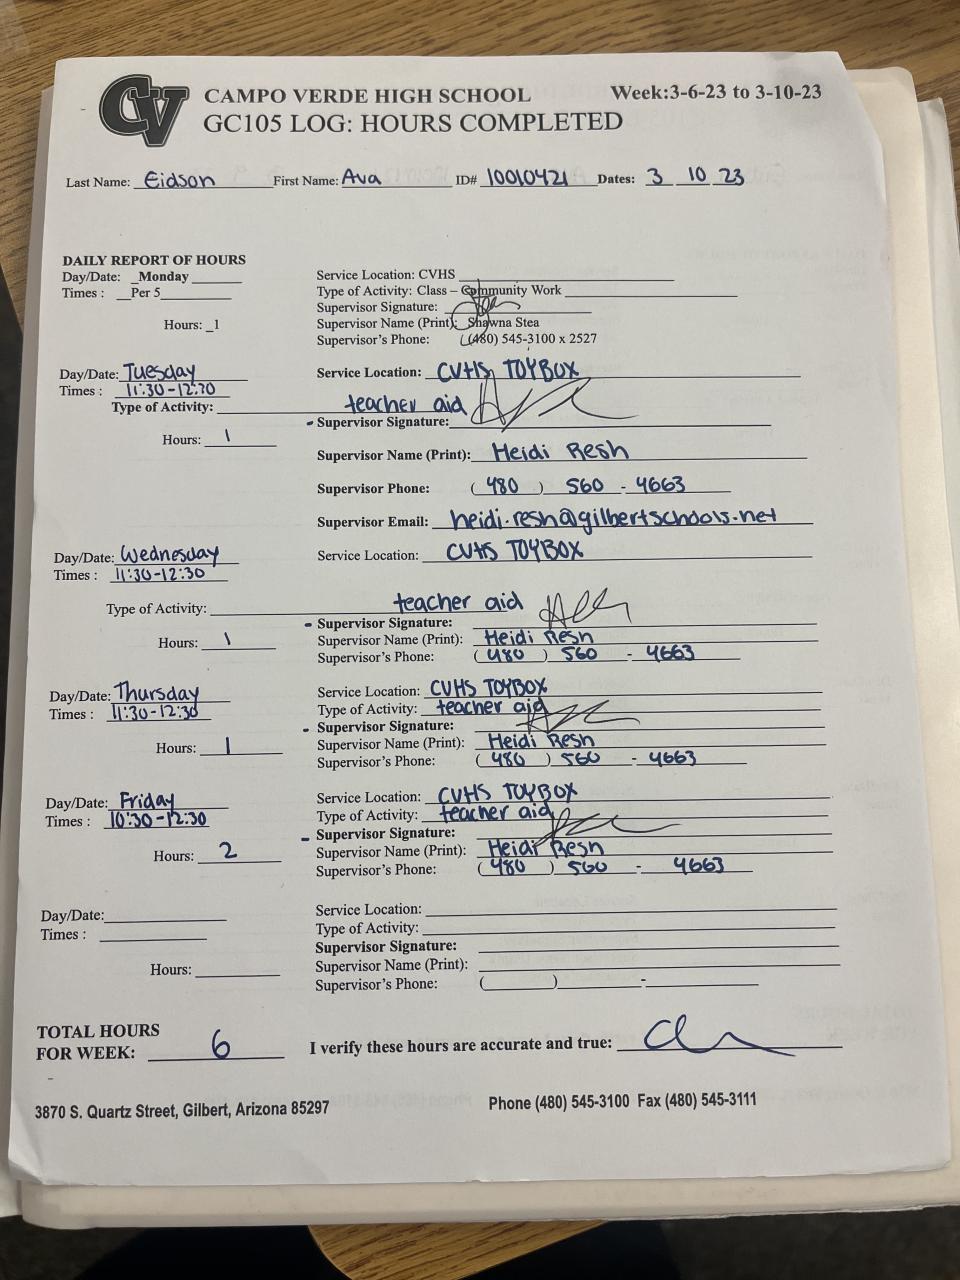 CV
CAMPO VERDE HIGH SCHOOL Week:3-6-23 to 3-10-23
GC105 LOG: HOURS COMPLETED
Last Name: Eidson First Name: Ava ID# 10010421 Dates: 3 10 23
DAILY REPORT OF HOURS
Day/Date: Monday Service Location: CVHS
Times : Per 5 Type of Activity: Class – Community Work
Supervisor Signature:
Hours: 1 Supervisor Name (Print): Shawna Stea
Supervisor's Phone: (480) 545-3100 x 2527
Day/Date: Tuesday Service Location: CVHS TOYBOX
Times : 11:30-12:30
Type of Activity: teacher aid
- Supervisor Signature:
Hours: 1
Supervisor Name (Print): Heidi Resh
Supervisor Phone: (480) 560 - 4663
Supervisor Email: heidi.resh@gilbertschools.net
Day/Date: Wednesday Service Location: CVHS TOYBOX
Times : 11:30-12:30
Type of Activity: teacher aid
- Supervisor Signature:
Hours: 1 Supervisor Name (Print): Heidi Resh
Supervisor's Phone: (480) 560 - 4663
Day/Date: Thursday Service Location: CVHS TOYBOX
Times : 11:30-12:30 Type of Activity: teacher aid
- Supervisor Signature:
Hours: 1 Supervisor Name (Print): Heidi Resh
Supervisor's Phone: (480) 560 - 4663
Day/Date: Friday Service Location: CVHS TOYBOX
Times : 10:30-12:30 Type of Activity: teacher aid
- Supervisor Signature:
Hours: 2 Supervisor Name (Print): Heidi Resh
Supervisor's Phone: (480) 560 - 4663
Day/Date: Service Location:
Times : Type of Activity:
Supervisor Signature:
Hours: Supervisor Name (Print):
Supervisor's Phone: ( ) -
TOTAL HOURS
FOR WEEK: 6 I verify these hours are accurate and true:
3870 S. Quartz Street, Gilbert, Arizona 85297 Phone (480) 545-3100 Fax (480) 545-3111